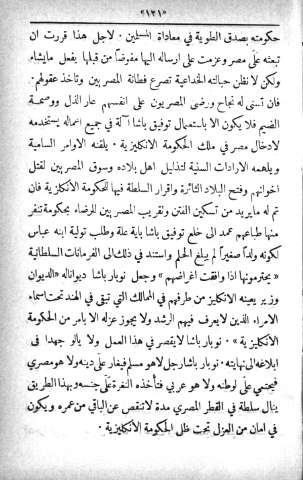 «١٢١»
حكومته بصدق الطوية في معاداة المسلمين . لاجل هذا قررت ان
تبعثه على مصر وعزمت على ارساله اليها مفوضاً من قبلها يفعل مايشاء
ولكن لا نظن حبالته الخداعية تصرع فطانة المصريين وتاخذ عقولهم .
فان تسنى له نجاح ورضى المصريون على انفسهم عار الذل ووصمة
الضيم فلا يكون الا باستعمال توفيق باشا آلة في جميع اعماله يستخدمه
لادخال مصر في ملك الحكومة الانكليزية . يلقنه الاوامر السامية
ويلهمه الارادات السنية لتذليل اهل بلاده وسوق المصريين لقتل
اخوانهم وفتح البلاد الثائرة واقرار السلطة فيها للحكومة الانكليزية فان
تم له مايريد من تسكين الفتن وتقريب المصريين للرضاء بحكومة تنفر
منها طباعهم عمد الى خلع توفيق باشا باية علة وطلب تولية ابنه عباس
لكونه ولداً صغيراً لم يبلغ الحلم واستند في ذلك الى الفرمانات السلطانية
« يحترمونها اذا وافقت اغراضهم » وجعل نوبار باشا ديوانا له «الديوان
وزير يعينه الانكليز من طرفهم في الممالك التي تبقى في الهند تحت اسماء
الامراء الذين لا يعرف فيهم الرشد ولا يجوز عزله الا بامر من الحكومة
الانكليزية » . نوبار باشا لا يقصر في هذا العمل ولا يالو جهدا فى
ابلاغه الى نهايته . نوبار باشا رجل لاهو مسلم فيغار على دينه ولا هو مصري
فيحتمي على لوطنه ولا هو عربي فتأخذه النفرة على جنسه وبهذا الطريق
ينال سلطة في القطر المصري مدة لا تنقص عن الباقي من عمره ويكون
في امان من العزل تحت ظل الحكومة الانكليزية .